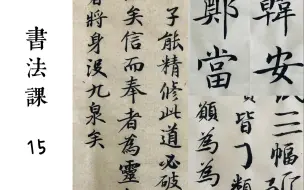 書法課
15
韓安
鄭當
子能精修此道必破
矣信而奉者為靈
者將身沒九泉矣
三幅
皆丁類
願為為